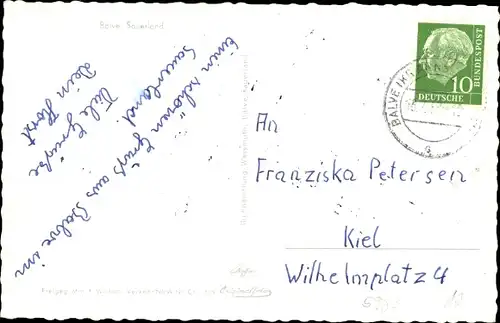 Balve Sauerland
Einen schönen Gruß aus Balve im
Sauerland
Viele Grüße
Dein Horst
10
DEUTSCHE
BUNDESPOST
BALVE
a
An
Franziska Petersen
Kiel
Wilhelmplatz 4